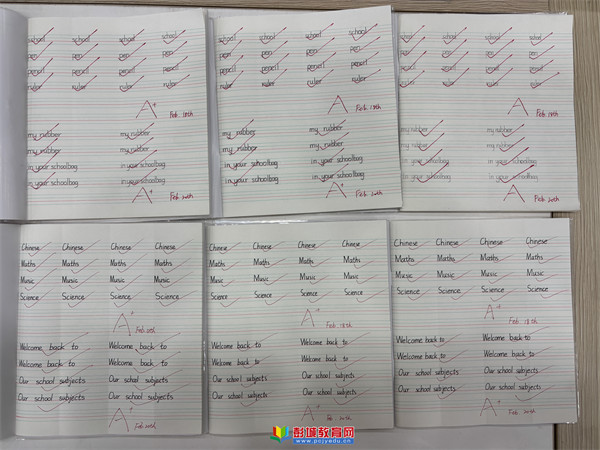 school school school school
pen pen pen pen
pencil pencil pencil pencil
ruler ruler ruler ruler
A+ Feb. 18th
my rubber my rubber
my rubber my rubber
in your schoolbag in your schoolbag
in your schoolbag in your schoolbag
A+ Feb 20th
school school school school
pen pen pen pen
pencil pencil pencil pencil
ruler ruler ruler ruler
A Feb. 18th
my rubber my rubber
my rubber my rubber
in your schoolbag in your schoolbag
in your schoolbag in your schoolbag
A+ Feb 20th
school school school school
pen pen pen pen
pencil pencil pencil pencil
ruler ruler ruler ruler
A Feb. 18th
my rubber my rubber
my rubber my rubber
in your schoolbag in your schoolbag
in your schoolbag in your schoolbag
A Feb 20th
Chinese Chinese Chinese Chinese
Maths Maths Maths Maths
Music Music Music Music
Science Science Science Science
A+ Feb.
Welcome back to Welcome back to
Welcome back to Welcome back to
Our school subjects Our school subjects
Our school subjects Our school subjects
A+ Feb. 20th
Chinese Chinese Chinese Chinese
Maths Maths Maths Maths
Music Music Music Music
Science Science Science Science
A+ Feb. 18th
Welcome back to Welcome back to
Welcome back to Welcome back to
Our school subjects Our school subjects
Our school subjects Our school subjects
A+ Feb. 20th
Chinese Chinese Chinese Chinese
Maths Maths Maths Maths
Music Music Music Music
Science Science Science Science
A+ Feb. 18th
Welcome back to Welcome back to
Welcome back to Welcome back to
Our school subjects Our school subjects
Our school subjects Our school subjects
A+ Feb. 20th
彭城教育网
www.pcjyedu.cn